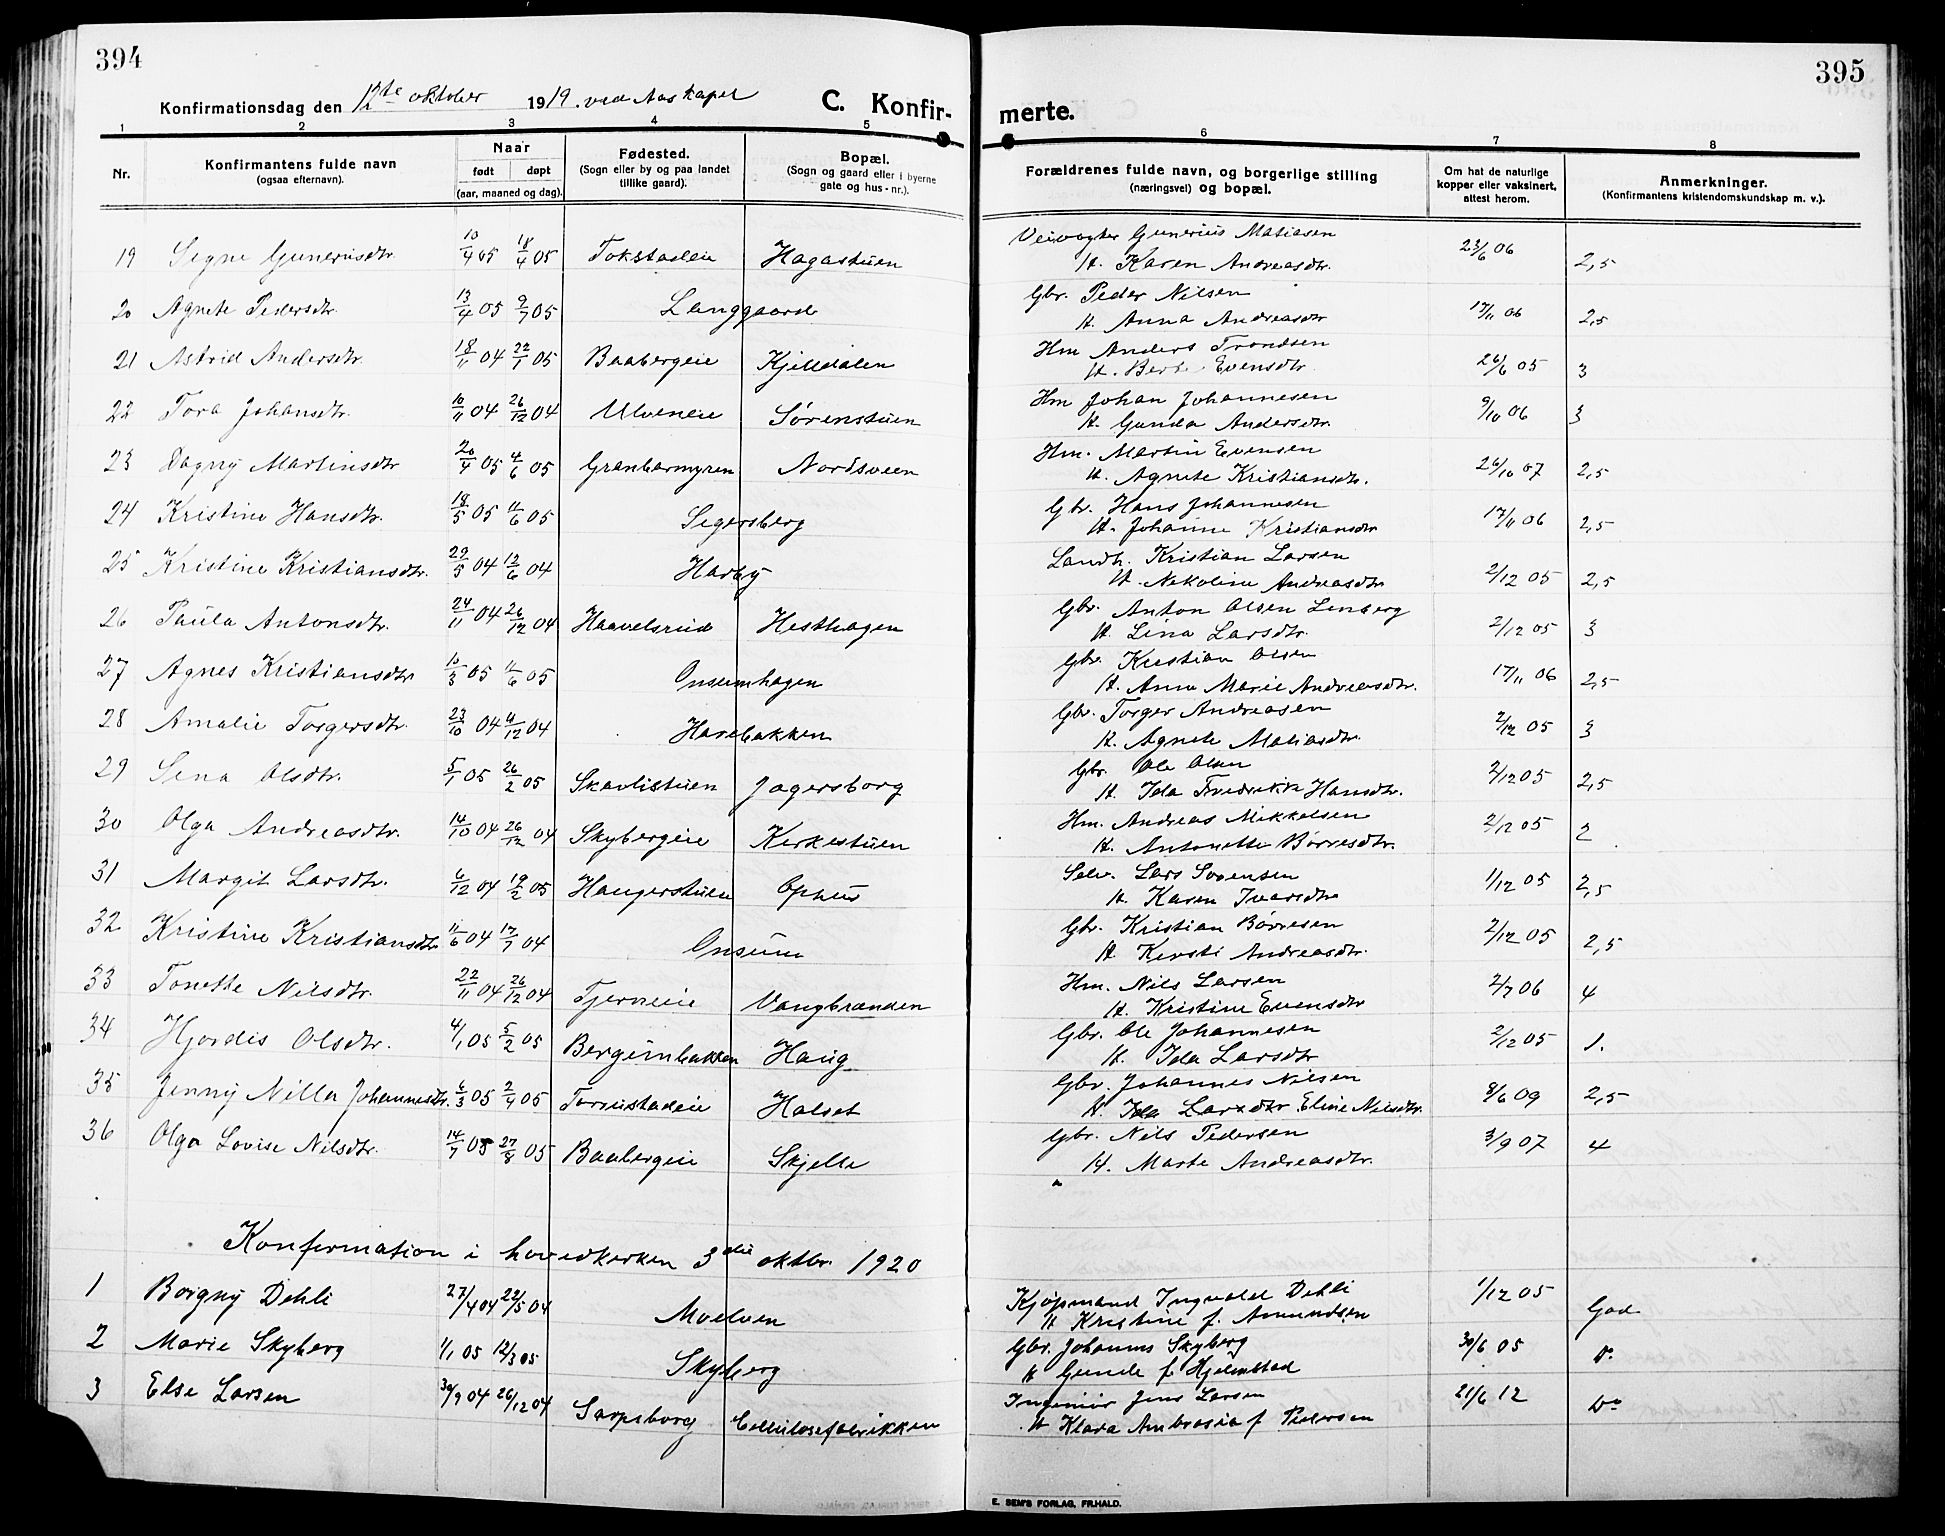 394
Konfirmationsdag den 12te oktober 1919. ved Aas kapel
C. Konfir-
1 2 3 4 5
Nr.
Konfirmantens fulde navn
(ogsaa efternavn).
Naar
født døpt
(aar, maaned og dag).
Fødested.
(Sogn eller by og paa landet
tillike gaard).
Bopæl.
(Sogn og gaard eller i byerne
gate og hus-nr.).
19 Signe Guneriusdtr. 10/4 05 18/4 05 Tokstadeie Hagastuen
20 Agnete Pedersdtr. 13/4 05 9/7 05 Langgaard
21 Astrid Andersdtr. 18/11 04 22/1 05 Baabergeie Kjelldalen
22 Tora Johansdtr. 10/11 04 26/12 04 Ulveneie Sørenstuen
23 Dagny Martinsdtr 20/4 05 4/6 05 Granbarmyren Nordsveen
24 Kristine Hansdtr. 18/5 05 11/6 05 Segersberg
25 Kristine Kristiansdtr. 29/5 04 12/6 04 Harby
26 Paula Antonsdtr. 24/11 04 26/12 04 Haavelsrud Hesthagen
27 Agnes Kristiansdtr 10/3 05 11/6 05 Onsumhagen
28 Amalie Torgersdtr. 23/10 04 4/12 04 Harebakken
29 Sena Olsdtr. 5/1 05 26/2 05 Skavlistuen Jagersborg
30 Olga Andreasdtr. 14/10 04 26/12 04 Skybergeie Kirkestuen
31 Margit Larsdtr. 6/12 04 19/2 05 Haugerstuen Ophus
32 Kristine Kristiansdtr 11/6 04 17/7 04 Onsum
33 Tonette Nilsdtr. 22/11 04 26/12 04 Tjerneie Vangbraaden
34 Hjordis Olsdtr. 4/1 05 5/2 05 Bergumbakken Haug
35 Jenny Nilla Johannesdtr. 6/3 05 2/4 05 Torsustadeie Halset
36 Olga Lovise Nilsdtr. 14/7 05 27/8 05 Baabergeie Skjelle
Konfirmation i hovedkirken 3die oktbr. 1920
1 Borgny Dehli 27/4 04 22/5 04 Moelven
2 Marie Skyberg 1/1 05 12/3 05 Skyberg
3 Else Larsen 30/9 04 26/12 04 Sarpsborg Cellulosefabrikken
395
merte.
6 7 8
Forældrenes fulde navn, og borgerlige stilling
(næringsvei) og bopæl.
Om hat de naturlige
kopper eller vaksinert,
attest herom.
Anmerkninger.
(Konfirmantens kristendomskundskap m. v.).
Veivogter Gunerius Matiasen
H. Karen Andreasdtr. 23/6 06 2,5
Gbr. Peder Nilsen
H. Anna Andreasdtr 17/11 06 2,5
Hm Anders Trondsen
H. Berte Evensdtr. 26/6 05 3
Hm Johan Johannesen
H. Gunda Andersdtr. 9/10 06 3
Hm. Martin Evensen
H. Agnete Kristiansdtr. 26/10 07 2,5
Gbr. Hans Johannesen
H. Johanne Kristiansdtr 17/11 06 2,5
Landh. Kristian Larsen
H. Nikoline Andreasdtr 2/12 05 2,5
Gbr. Anton Olsen Linberg
H. Lina Larsdtr. 2/12 05 3
Gbr. Kristian Olsen
H. Anne Marie Andreasdtr. 17/11 06 2,5
Gbr. Torger Andreasen
H. Agnete Matiasdtr. 2/12 05 3
Gbr. Ole Olsen
H. Ida Fredrikke Hansdtr. 2/12 05 2,5
Hm. Andreas Mikkelsen
H. Antonette Børresdtr. 2/12 05 2
Selv. Lars Sorensen
H. Karen Ivarsdtr 1/12 05 2,5
Gbr. Kristian Børresen
H. Kersti Andreasdtr. 2/12 05 2,5
Hm. Nils Larsen
H. Kristine Evensdtr 2/7 06 4
Gbr. Ole Johannesen
H. Ida Larsdtr 2/12 05 1.
Gbr. Johannes Nilsen
H. Ida Larsdtr Eline Nilsdtr. 8/6 09 2,5
Gbr. Nils Pedersen
H. Marte Andreasdtr. 3/9 07 4
Kjøpmand Ingvald Dehli
H Kristine f. Amundsen 1/12 05 God
Gbr. Johannes Skyberg
H Gunde f Hjelmstad 30/6 05 Do
Ingeniør Jens Larsen
H Klara Ambrosia f. Pedersen 21/6 12 Do
E. SEM'S FORLAG, FR.HALD.